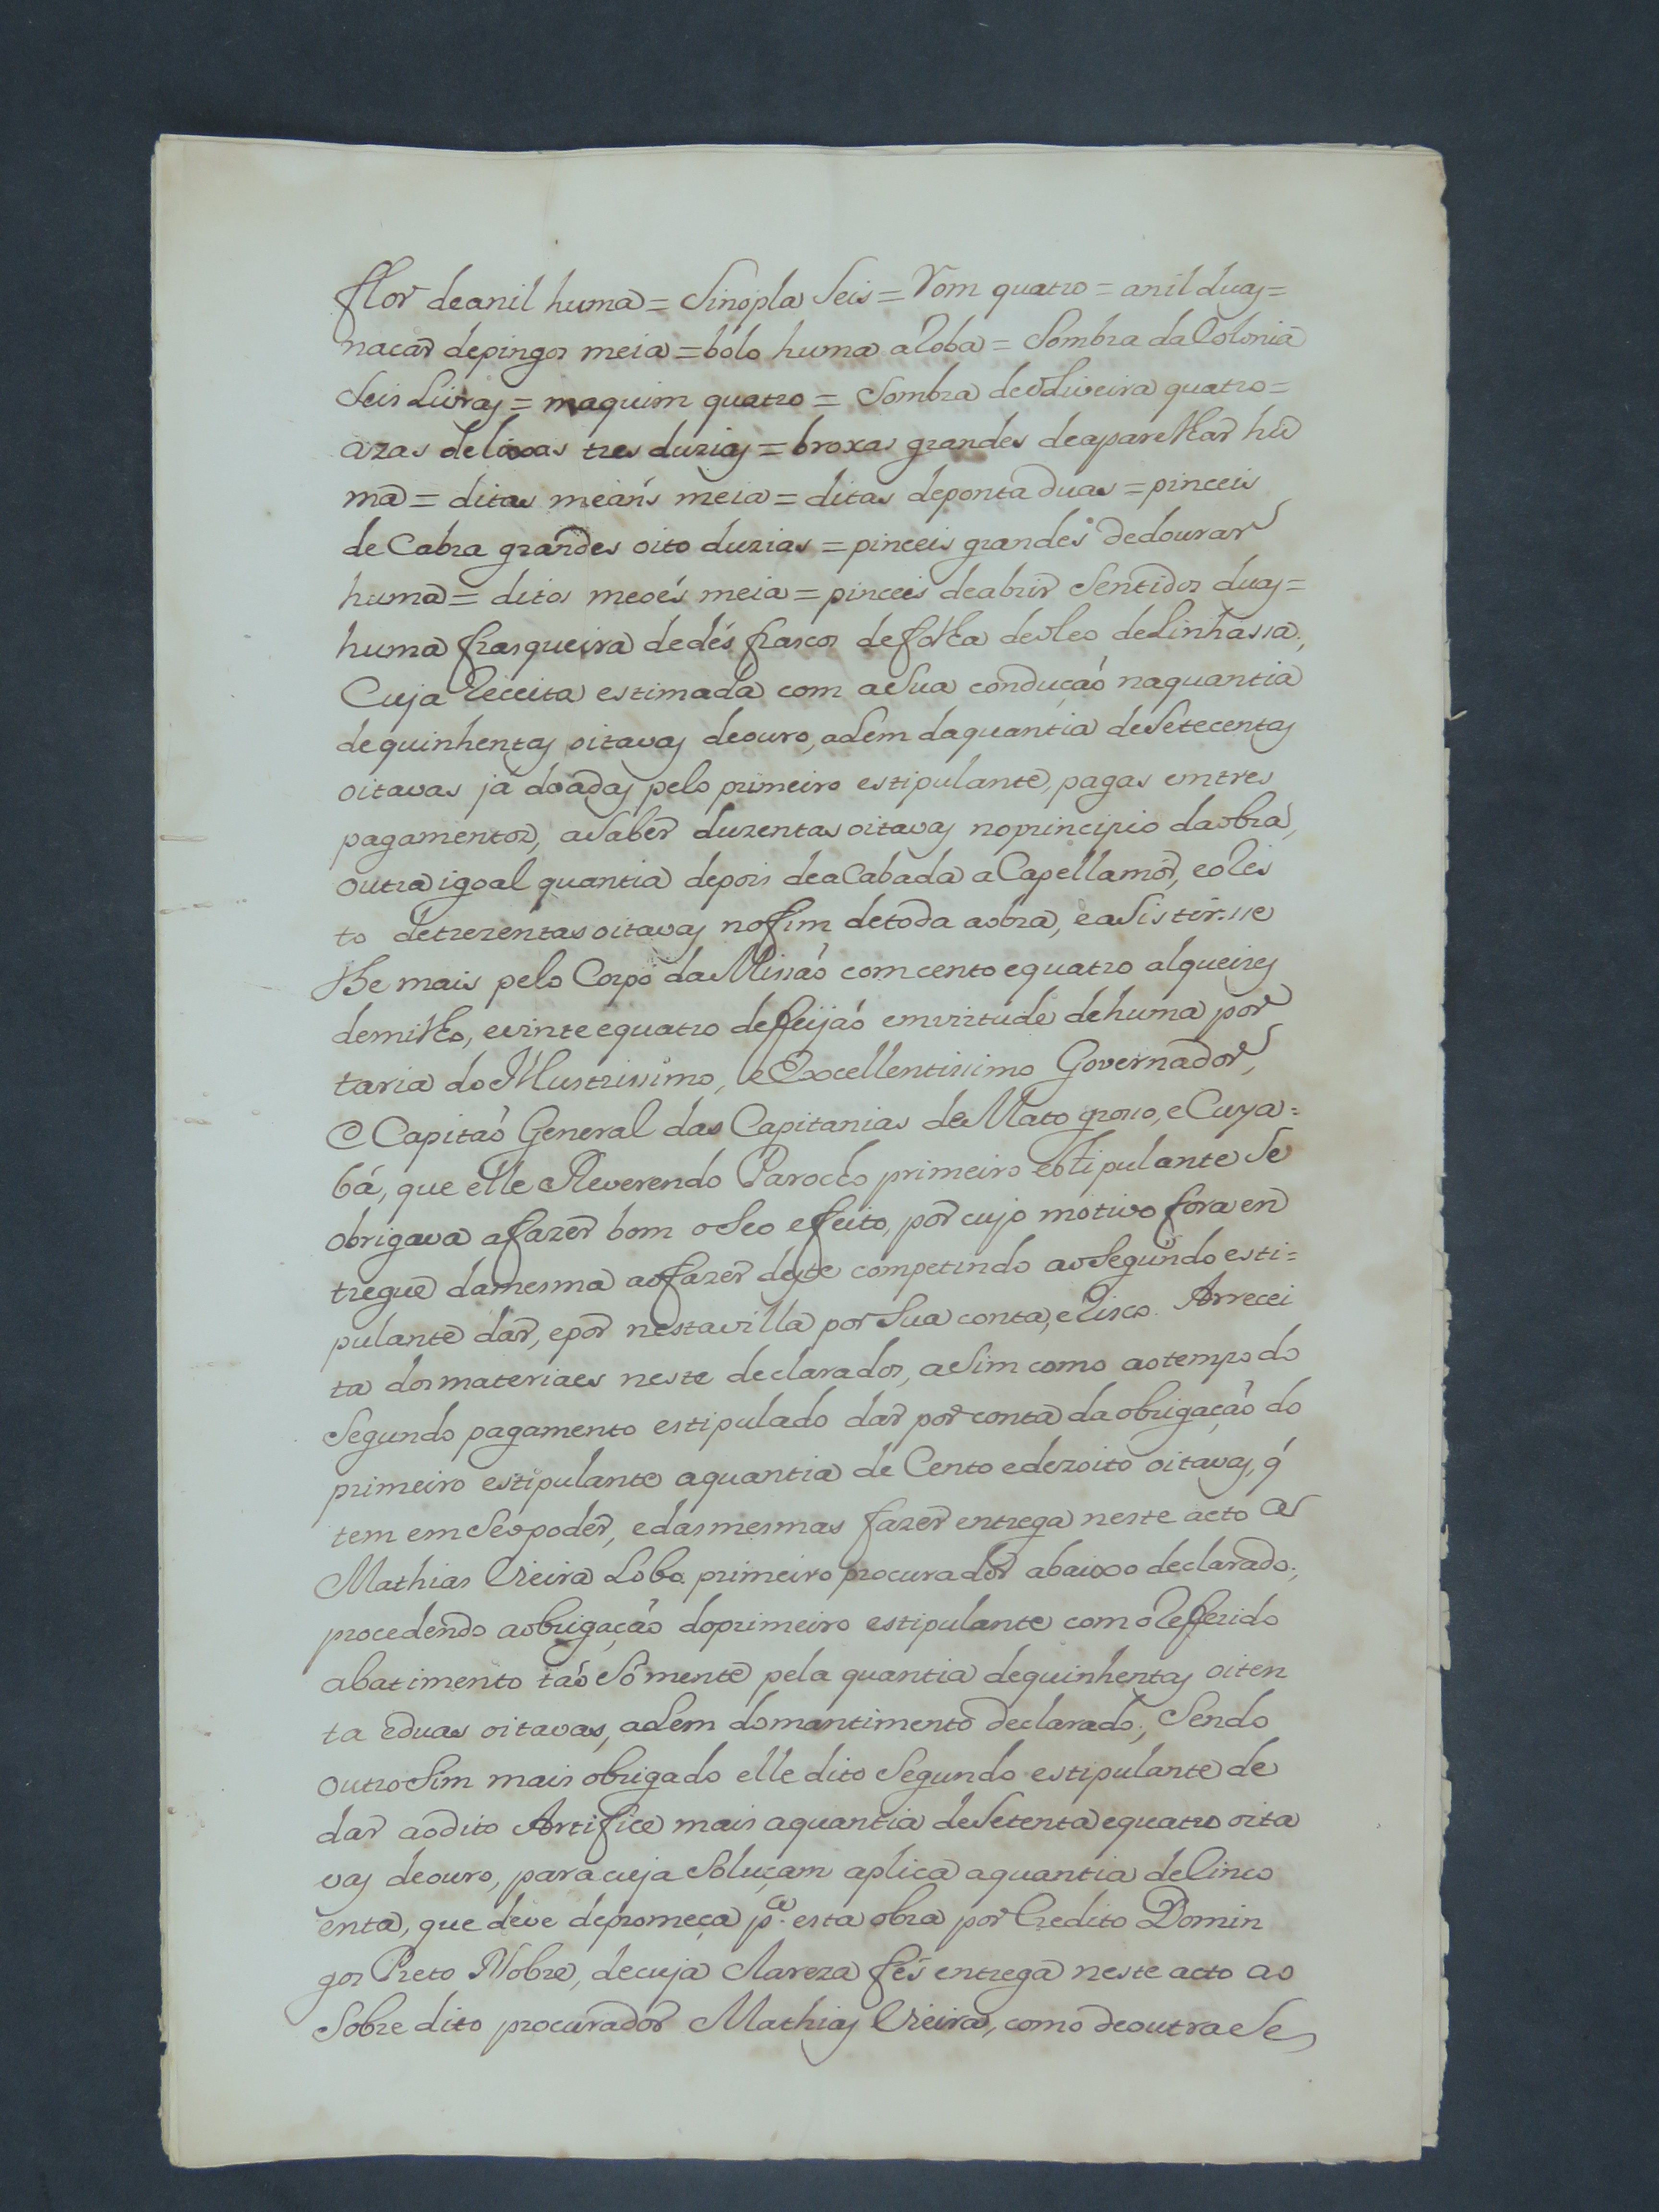 flor deanil huma = Sinopla Seis = Rom quatro = anil duas =
nacar depingos meia = bolo huma aRoba = Sombra da Colonia
Seis Livras = maquim quatro = Sombra deoLiveira quatro =
azas de lixas tres duzias = broxas grandes deaparelhar hu
ma = ditas meiáns meia = ditas deponta duas = pinceis
de Cabra grandes oito duzias = pinceis grandes dedourar
huma = ditos meoés meia = pinceis deabrir Sentidos duas =
huma frasqueira dedés frascos defolha deoleo deLinhassa;
Cuja Receita estimada com aSua condução naquantia
dequinhentas oitavas deouro, alem daquantia deSetecentas
oitavas já doadas pelo primeiro estipulante, pagas emtres
pagamentos, aSaber duzentas oitavas noprincipio daobra,
outra igoal quantia depois deaCabada a Capellamór, eoRes
to detrezentas oitavas nofim detoda aobra, eaSistir-sse
lhe mais pelo Corpo da Missaó comcento equatro alqueires
demilho, evinte equatro defeijaó emvirtude dehuma por
taria do Illustrissimo, eExcellentissimo Governador,
e Capitaó General das Capitanias deMato grosso, e Cuya=
bá, que elle Reverendo Parocho primeiro estipulante Se
obrigava afazer bom oSeo efeito, por cujo motivo fora en
tregue damesma aofazer deste competindo aoSegundo esti=
pulante dar, epor nestavilla por Sua conta, eRisco. Arrecei
ta dosmateriaes neste declarados, aSim como aotempo do
Segundo pagamento estipulado dar por conta da obrigação do
primeiro estipulante aquantia de Cento edezoito oitavas, q́
tem emSeopoder, edasmesmas fazer entrega neste acto a
Mathias Vieira Lobo primeiro procurador abaixo declarado;
procedendo aobrigação doprimeiro estipulante como Refferido
abatimento taó Sómente pela quantia dequinhentas oiten
ta eduas oitavas, alem domantimento declarado; Sendo
outroSim mais obrigado elle dito Segundo estipulante de
dar aodito Artifice mais aquantia deSetenta equatro oita
vas deouro, para cuja Soluçam aplica aquantia deCinco
enta, que deve depromeça p.ª esta obra por Credito Domin
gos Preto Nobre, decuja Clareza fés entrega neste acto ao
Sobre dito procurador Mathias Vieira, como deoutra Se